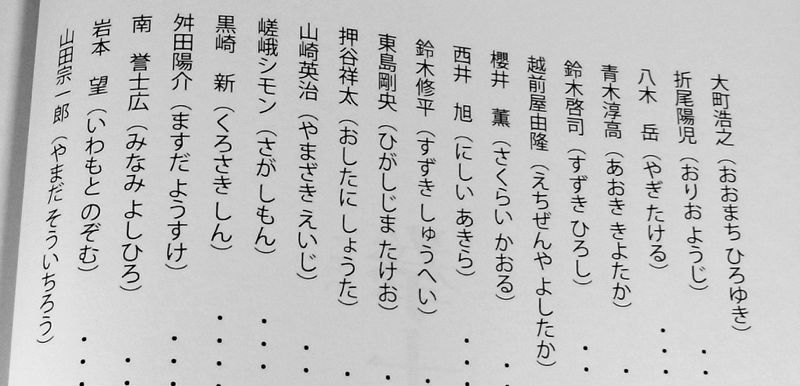 大町浩之（おおまち ひろゆき）・・
折尾陽児（おりお ようじ）・・
八木　岳（やぎ たける）・・・
青木淳高（あおき きよたか）・
鈴木啓司（すずき ひろし）・・
越前屋由隆（えちぜんや よしたか）
櫻井　薫（さくらい かおる）・・
西井　旭（にしい あきら）・・・
鈴木修平（すずき しゅうへい）・
東島剛央（ひがしじま たけお）・
押谷祥太（おしたに しょうた）・
山崎英治（やまざき えいじ）・・
嵯峨シモン（さが しもん）・・・
黒崎　新（くろさき しん）・・・
舛田陽介（ますだ ようすけ）・・
南　誉士広（みなみ よしひろ）・・
岩本　望（いわもと のぞむ）・・・
山田宗一郎（やまだ そういちろう）